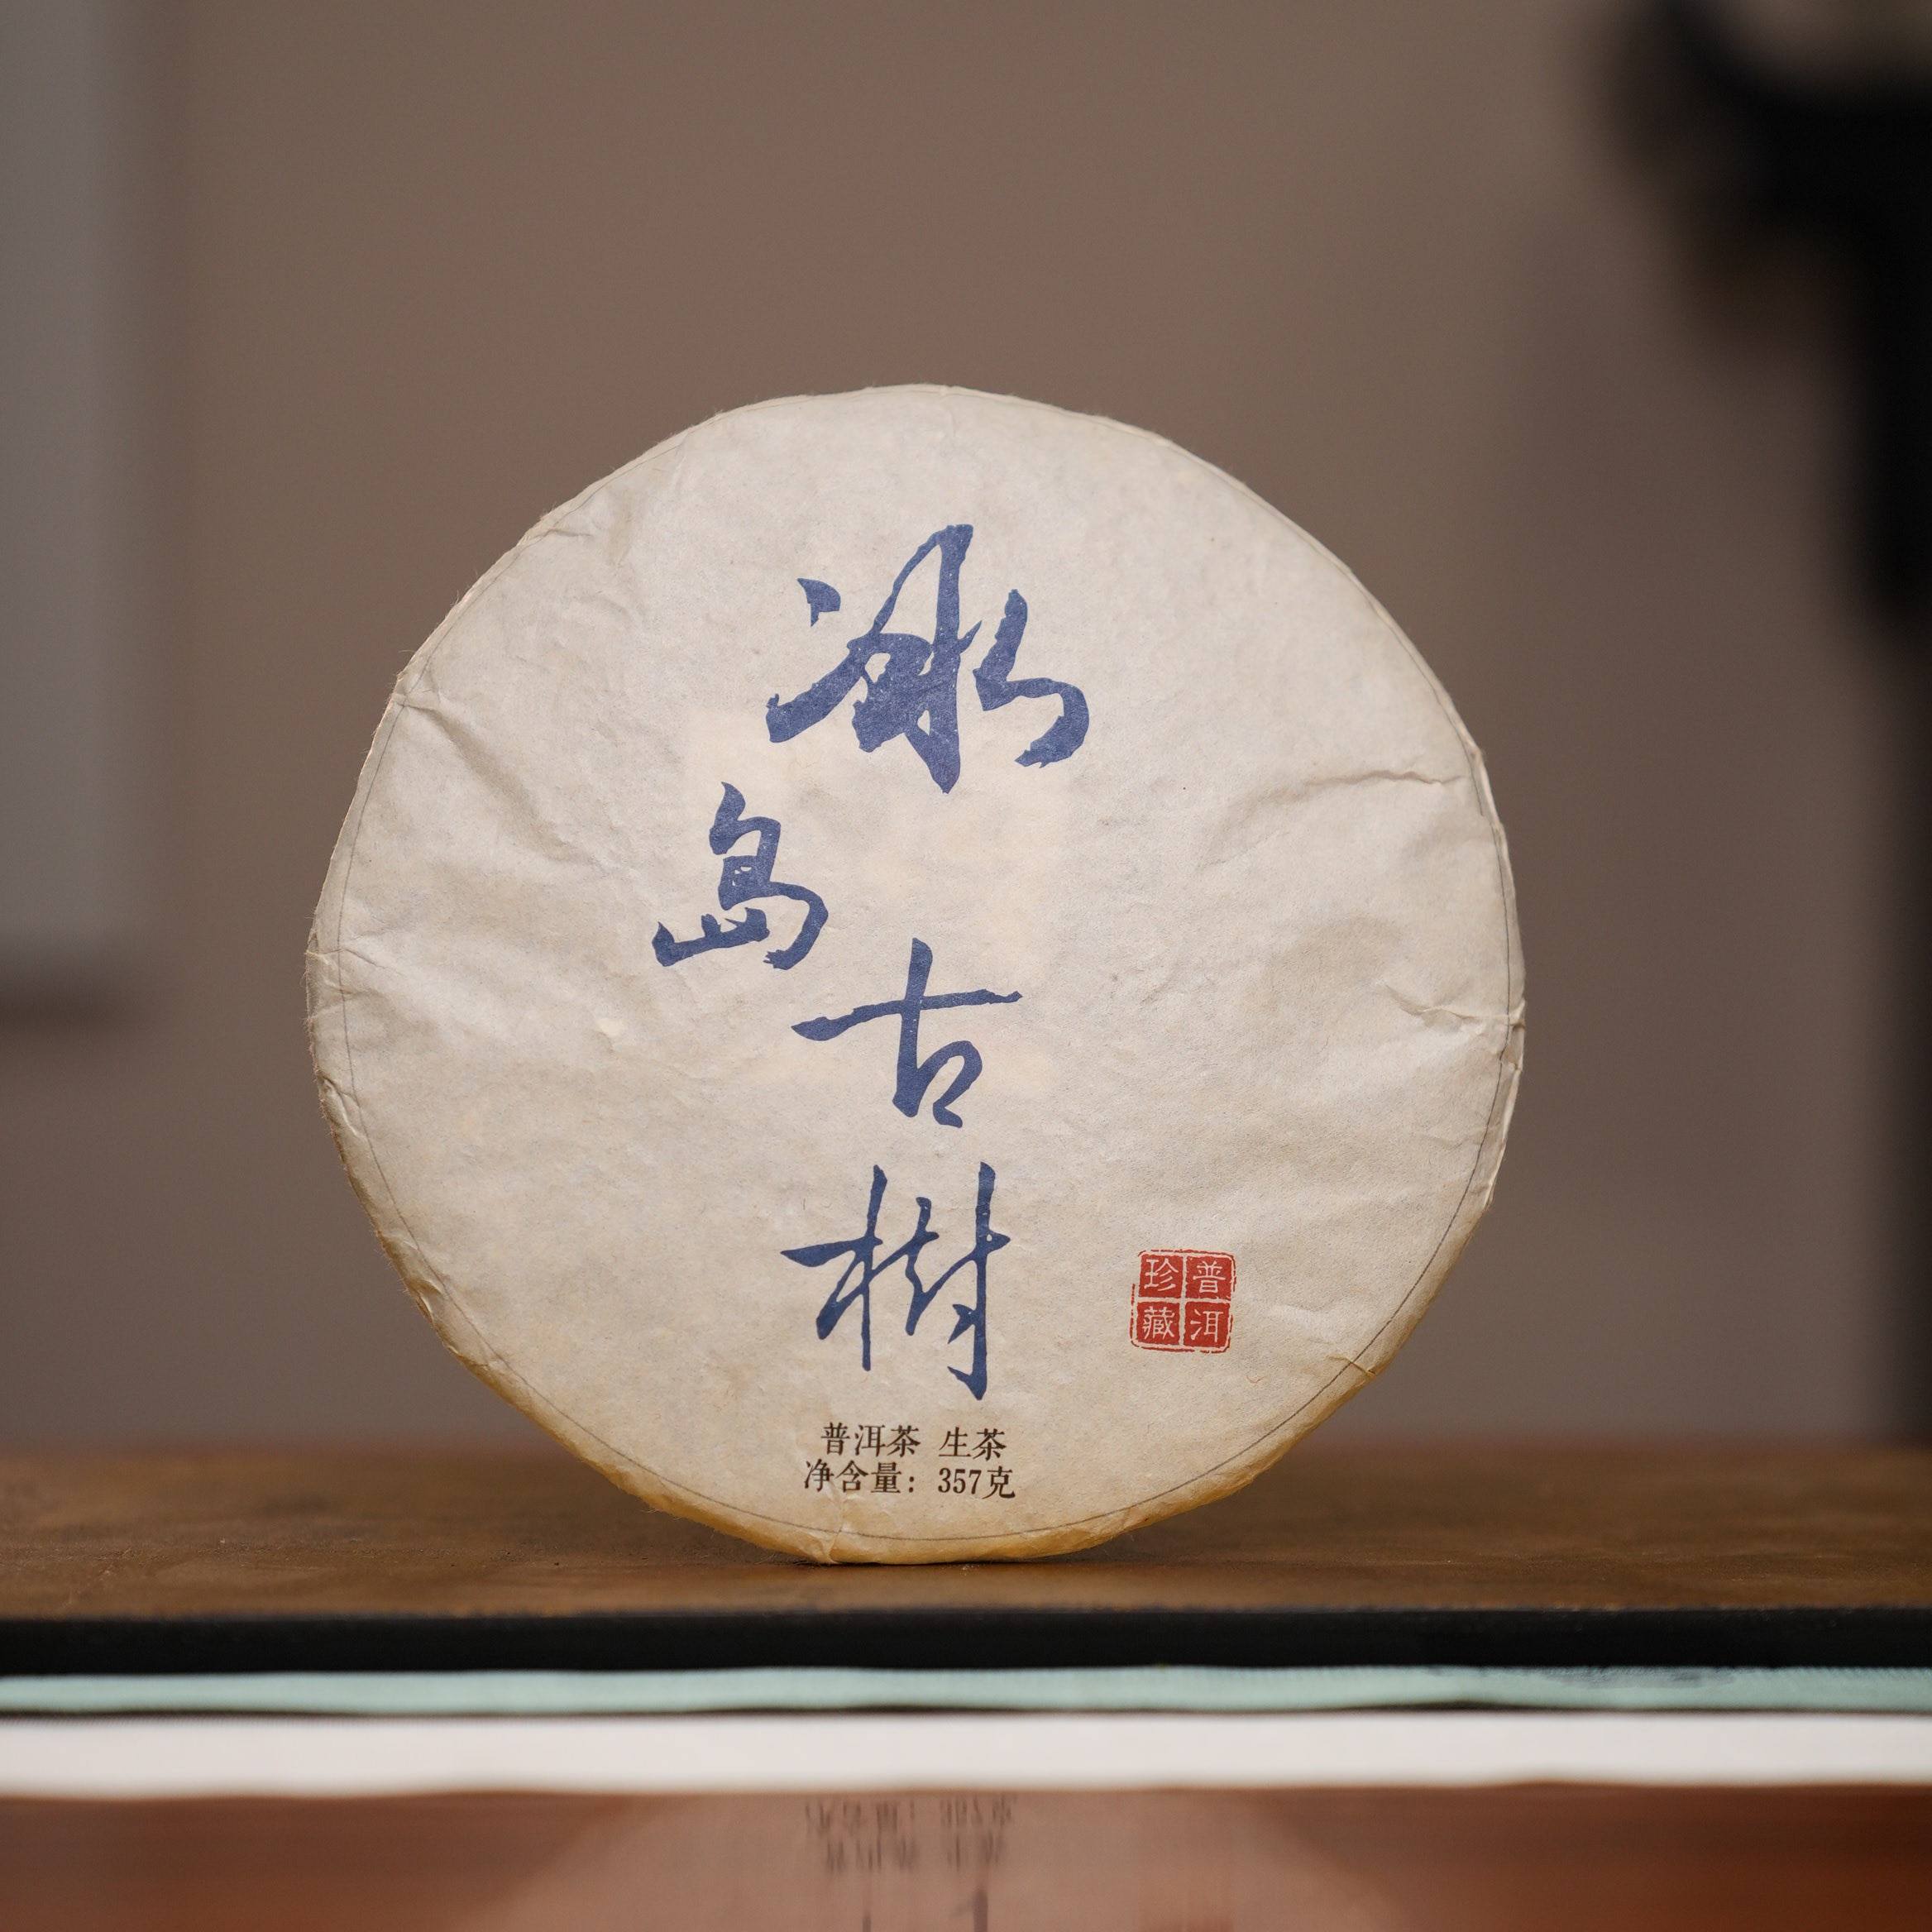 冰島古樹
普洱珍藏
普洱茶 生茶
净含量：357克